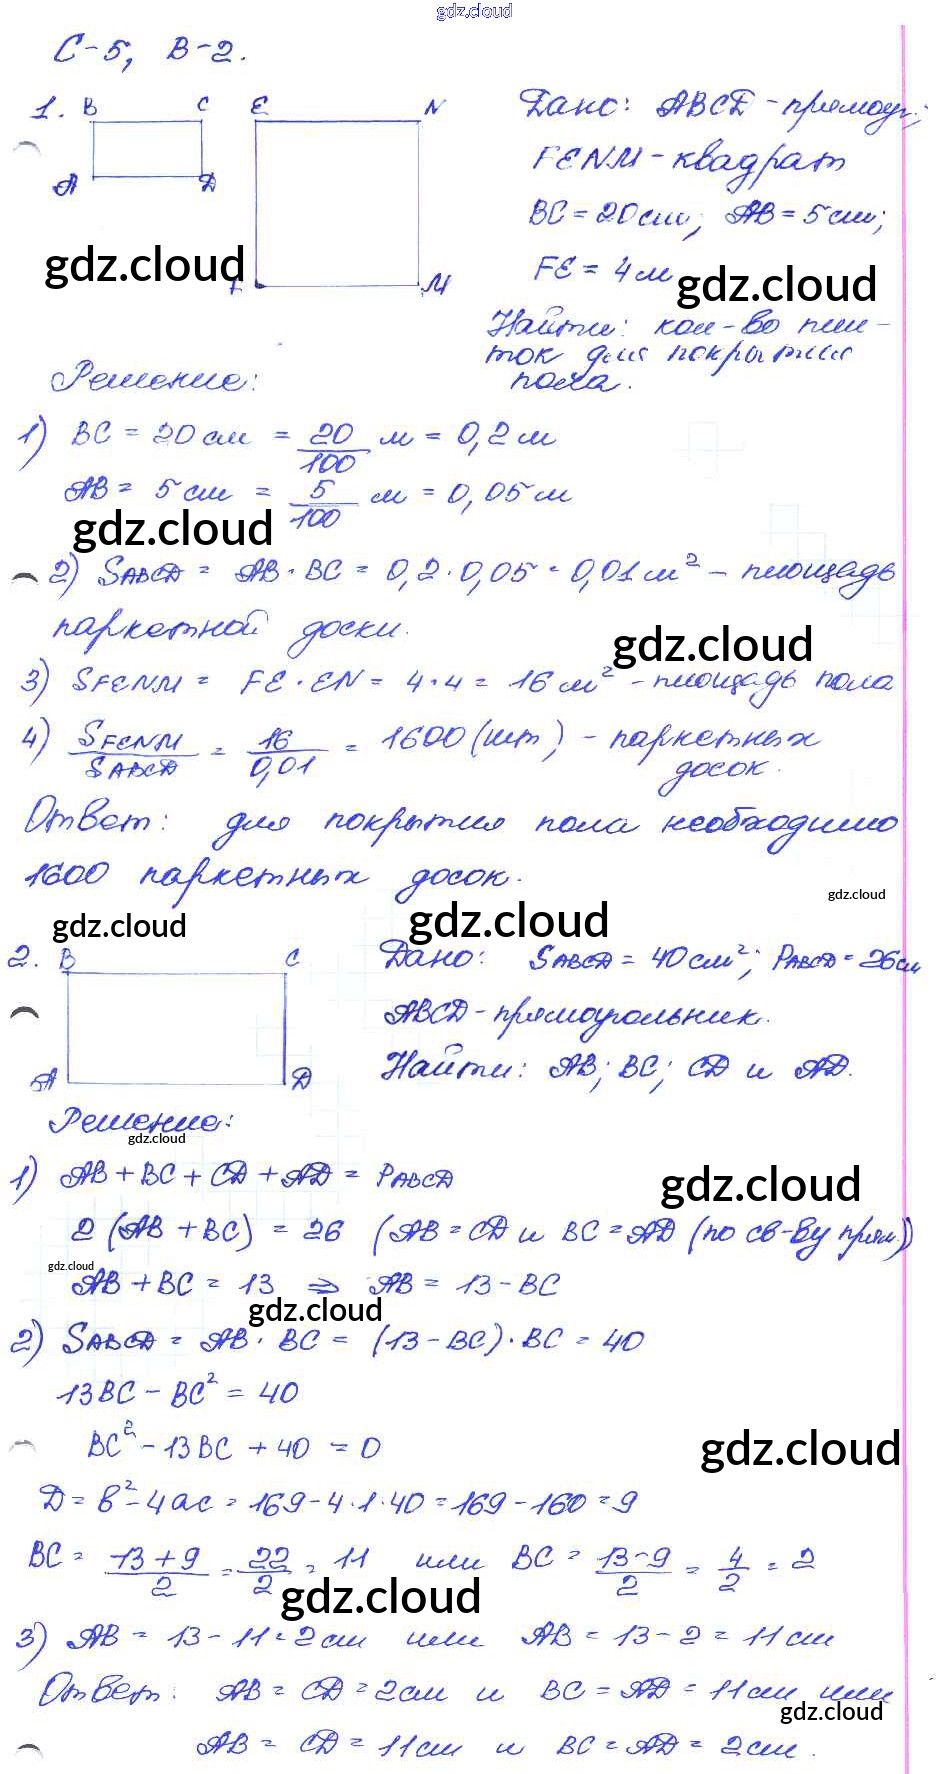 gdz.cloud
С-5, В-2.
1. B C E N
A D F M
Дано: ABCD - прямоуг.;
FENM - квадрат
BC = 20 см; AB = 5 см;
FE = 4 м
gdz.cloud gdz.cloud
Найти: кол-во плит-
ток для покрытия
пола.
Решение:
1) BC = 20 см = 20/100 м = 0,2 м
AB = 5 см = 5/100 м = 0,05 м
gdz.cloud
2) SABCD = AB · BC = 0,2 · 0,05 = 0,01 м² - площадь
паркетной доски.
gdz.cloud
3) SFENM = FE · EN = 4 · 4 = 16 м² - площадь пола
4) SFENM/SABCD = 16/0,01 = 1600 (шт) - паркетных
досок.
Ответ: для покрытия пола необходимо
1600 паркетных досок.
gdz.cloud gdz.cloud gdz.cloud
2. B C
A D
Дано: SABCD = 40 см²; PABCD = 26 см
ABCD - прямоугольник.
Найти: AB; BC; CD и AD.
Решение:
gdz.cloud
1) AB + BC + CD + AD = PABCD
gdz.cloud
2 (AB + BC) = 26 (AB = CD и BC = AD (по св-ву прям.))
gdz.cloud
AB + BC = 13 ⇒ AB = 13 - BC
gdz.cloud
2) SABCD = AB · BC = (13 - BC) · BC = 40
13BC - BC² = 40
BC² - 13BC + 40 = 0
gdz.cloud
D = b² - 4ac = 169 - 4·1·40 = 169 - 160 = 9
BC = 13+9/2 = 22/2 = 11 или BC = 13-9/2 = 4/2 = 2
gdz.cloud
3) AB = 13 - 11 = 2 см или AB = 13 - 2 = 11 см
Ответ: AB = CD = 2 см и BC = AD = 11 см или
gdz.cloud
AB = CD = 11 см и BC = AD = 2 см.